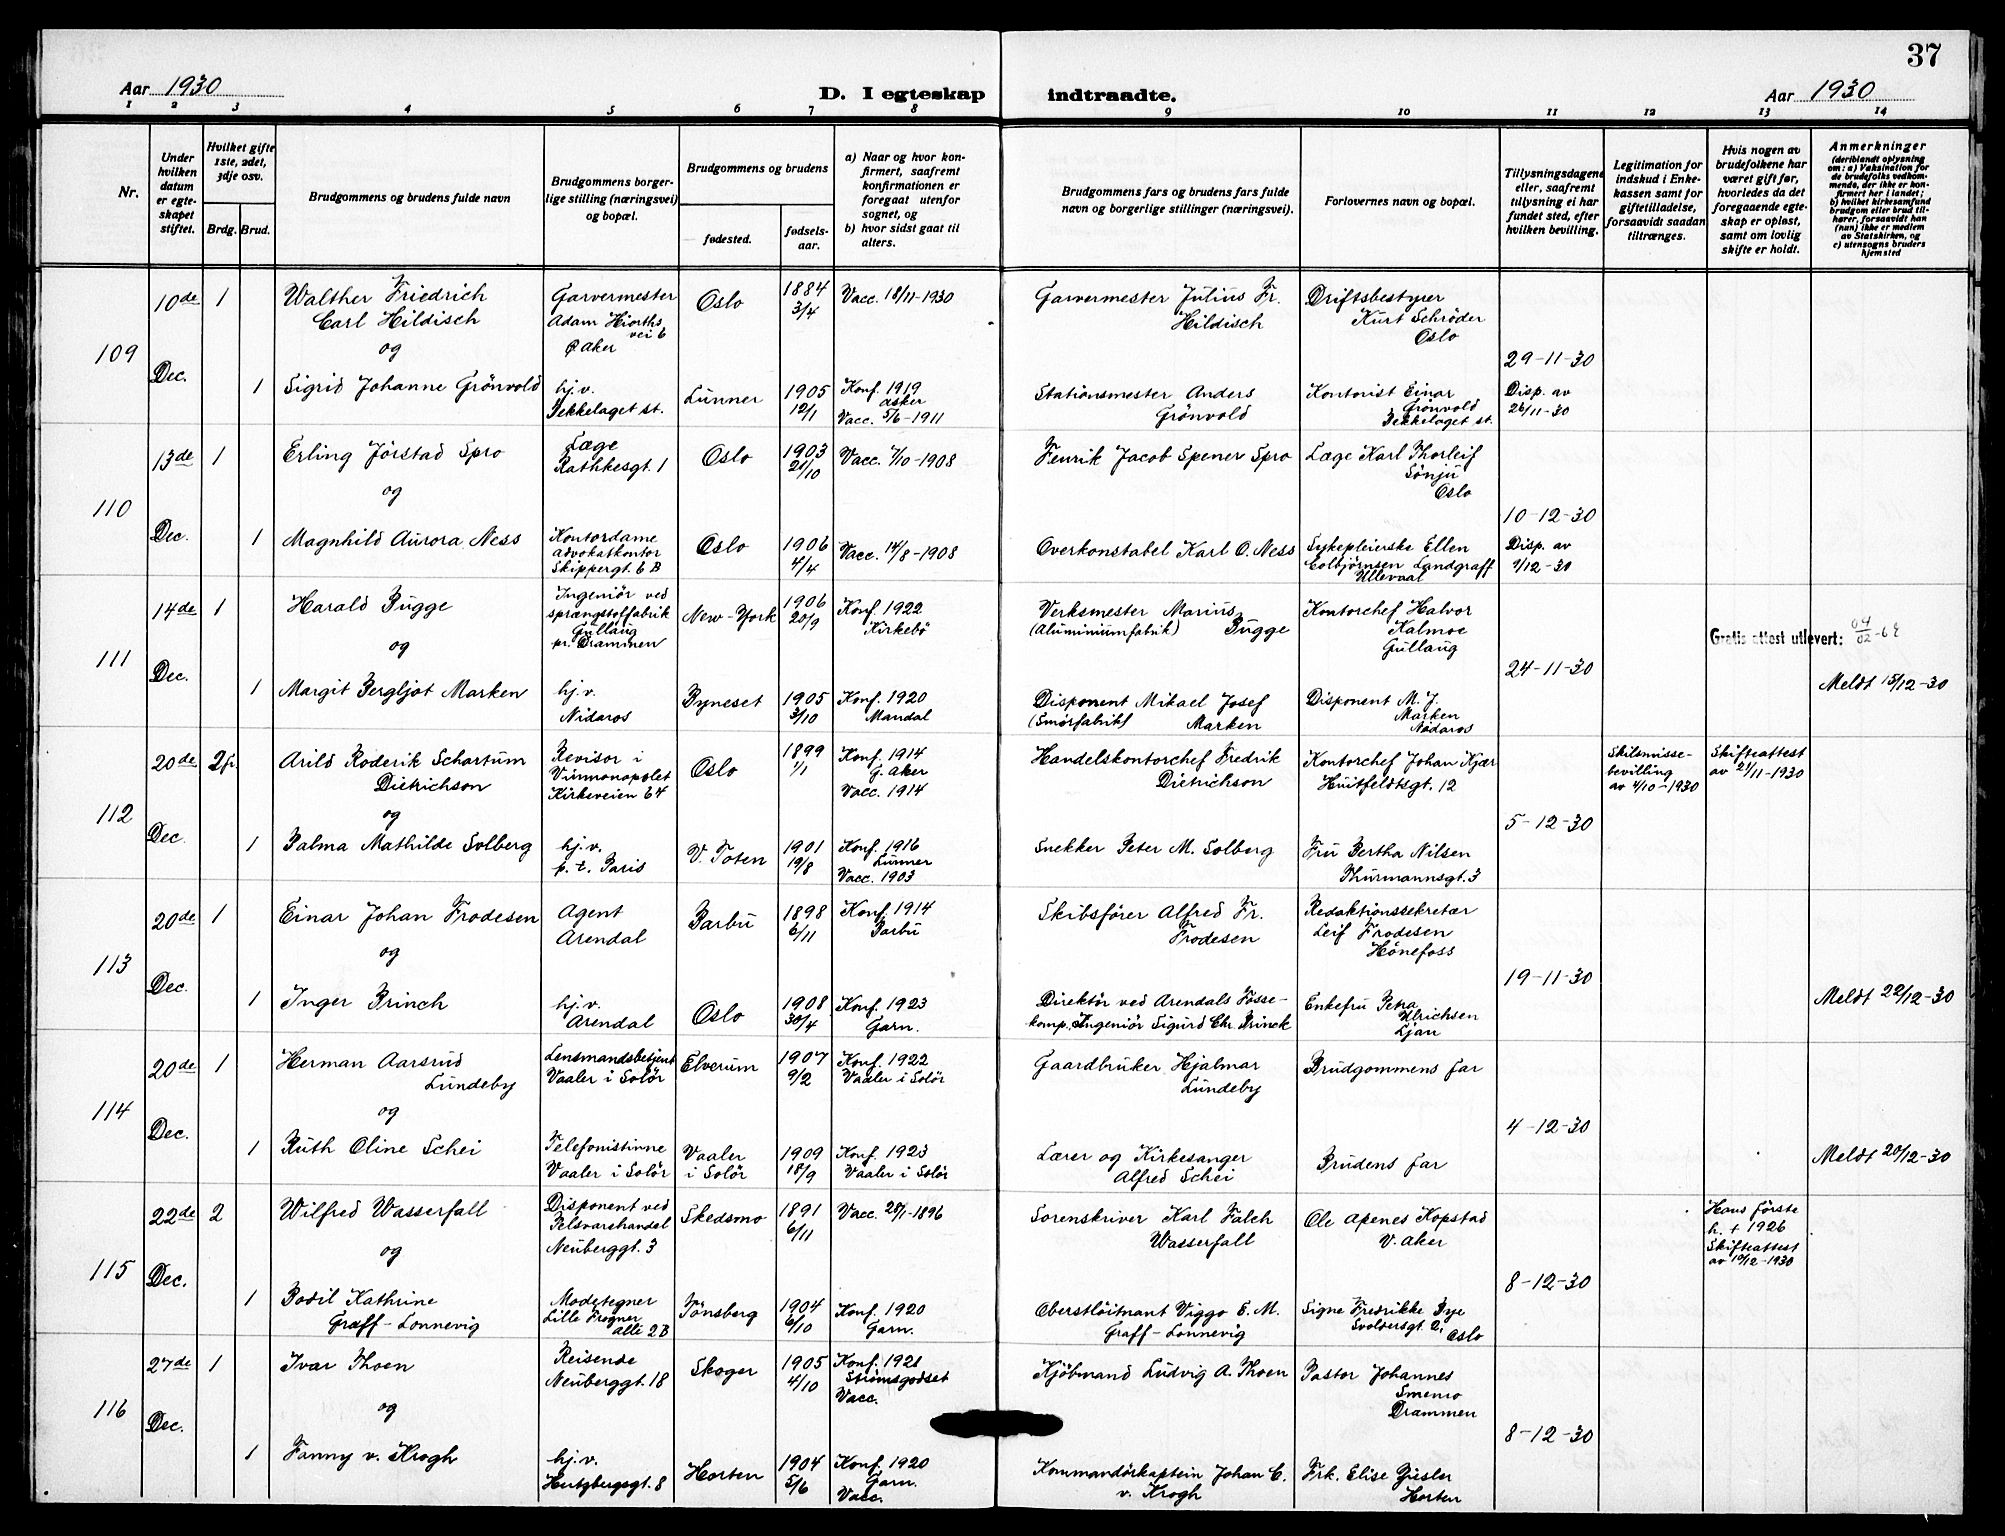 37
Aar 1930
D. I egteskap indtraadte.
Aar 1930
1 2 3 4 5 6 7 8 9 10 11 12 13 14
Nr.
Under hvilken datum er egteskapet stiftet.
Hvilket gifte 1ste, 2det, 3dje osv.
Brdg. Brud.
Brudgommens og brudens fulde navn
Brudgommens borgerlige stilling (næringsvei) og bopæl.
Brudgommens og brudens
fødested.
fødselsaar.
a) Naar og hvor konfirmert, saafremt konfirmationen er foregaat utenfor sognet, og
b) hvor sidst gaat til alters.
Brudgommens fars og brudens fars fulde navn og borgerlige stillinger (næringsvei).
Forlovernes navn og bopæl.
Tillysningsdagene eller, saafremt tillysning ei har fundet sted, efter hvilken bevilling.
Legitimation for indskud i Enkekassen samt for giftetilladelse, forsaavidt saadan tiltrænges.
Hvis nogen av brudefolkene har været gift før, hvorledes da det foregaaende egteskap er opløst, samt om lovlig skifte er holdt.
Anmerkninger
(deriblandt oplysning om: a) Vaksination for de brudefolks vedkommende, der ikke er konfirmert her i landet; b) hvilket kirkesamfund brudgom eller brud tilhører, forsaavidt han (hun) ikke er medlem av Statskirken, og c) utensogns bruders hjemsted
109
10de Dec.
1
Walther Friedrich
Carl Hildisch
og
Garvermester
Adam Hiorths
vei 6
Ø Aker
Oslo
1884
3/4
Vacc. 18/11-1930
Garvermester Julius Fr.
Hildisch
Driftsbestyrer
Kurt Schröder
Oslo
29-11-30
1
Sigrid Johanne Grönvold
hj.v.
Bekkelaget st.
Lunner
1905
12/1
Konf. 1919
Asker
Vacc. 5/6-1911
Stationsmester Anders
Grönvold
Kontorist Einar
Grönvold
Bekkelaget st.
Disp. av
26/11-30
110
13de Dec.
1
Erling Jörstad Spro
og
Læge
Rathkesgt. 1
Oslo
1903
21/10
Vacc. 7/10-1908
Henrik Jacob Spener Spro
Læge Karl Thorleif
Sönju
Oslo
10-12-30
1
Magnhild Aurora Ness
Kontordame
advokatkontor
Skippergt. 6 B
Oslo
1906
4/4
Vacc. 14/8-1908
Overkonstabel Karl O. Ness
Sykepleierske Ellen
Colbjørnsen Landgraff
Ullevaal
Disp. av
1/12-30
111
14de Dec.
1
Harald Bugge
og
Ingeniør ved
sprængstoffabrik
Gullaug
pr. Drammen
New-York
1906
20/9
Konf. 1922
Kirkebö
Verksmester Marius
(Aluminiumfabrik) Bugge
Kontorchef Halvor
Kalmoe
Gullaug
24-11-30
Gratis attest utlevert:
1
Margit Bergljot Marken
hj.v.
Nidaros
Byneset
1905
3/10
Konf. 1920
Mandal
Disponent Mikael Josef
(Smörfabrik) Marken
Disponent M. J.
Marken
Nidaros
Meldt 15/12-30
112
20de Dec.
2 fr.
Arild Roderik Schartum
Dietrichson
og
Revisor i
Vinmonopolet
Kirkeveien 64
Oslo
1899
1/1
Konf. 1914
G. Aker
Vacc. 1914
Handelskontorchef Fredrik
Dietrichson
Kontorchef Johan Kjær
Huitfeldtsgt. 12
5-12-30
Skilsmissebevilling
av 4/10-1930
Skifteattest
av 21/11-1930
1
Palma Mathilde Solberg
hj.v.
p.t. Paris
V. Toten
1901
19/8
Konf. 1916
Lunner
Vacc. 1903
Snekker Peter M. Solberg
Fru Bertha Nilsen
Thurmannsgt. 3
113
20de Dec.
1
Einar Johan Frodesen
og
Agent
Arendal
Barbu
1898
6/11
Konf. 1914
Barbu
Skibsförer Alfred Fr.
Frodesen
Redaktionssekretær
Leif Frodesen
Hönefoss
19-11-30
1
Inger Brinch
hj.v.
Arendal
Oslo
1908
30/4
Konf. 1923
Garn.
Direktör ved Arendals Fosse-
komp. Ingeniör Sigurd Chr. Brinck
Enkefru Petra
Ulrichsen
Ljan
Meldt 22/12-30
114
20de Dec.
1
Herman Aarsrud
Lundeby
og
Lensmandsbetjent
Vaaler i Solör
Elverum
1907
9/2
Konf. 1922
Vaaler i Solör
Gaardbruker Hjalmar
Lundeby
Brudgommens far
4-12-30
1
Ruth Oline Schei
Telefonistinne
Vaaler i Solör
Vaaler
i Solör
1909
18/9
Konf. 1923
Vaaler i Solör
Lærer og Kirkesanger
Alfred Schei
Brudens far
Meldt 20/12-30
115
22de Dec.
2
Wilfred Wasserfall
og
Disponent ved
Pelsvarehandel
Neuberggt. 3
Skedsmo
1891
6/11
Vacc. 28/1-1896
Sorenskriver Karl Falch
Wasserfall
Ole Apenes Kopstad
V. Aker
8-12-30
Hans förste
h. † 1926
Skifteattest
av 19/12-1930
1
Bodil Kathrine
Graff-Lonnevig
Modetegner
Lille Frogner
alle 2B
Tönsberg
1904
6/10
Konf. 1920
Garn.
Oberstlöitnant Viggo E. M.
Graff-Lonnevig
Signe Fredrikke Bye
Svoldersgt. 2,
Oslo
116
27de Dec.
1
Ivar Thoen
og
Reisende
Neuberggt. 18
Skoger
1905
4/10
Konf. 1921
Strömsgodset
Vacc.
Kjöbmand Ludvig A. Thoen
Pastor Johannes
Smemo
Drammen
8-12-30
1
Fanny v. Krogh
hj.v.
Hertzbergsgt. 8
Horten
1904
5/6
Konf. 1920
Garn.
Vacc.
Kommandörkaptein Johan C.
v. Krogh
Frk. Elise
Horten